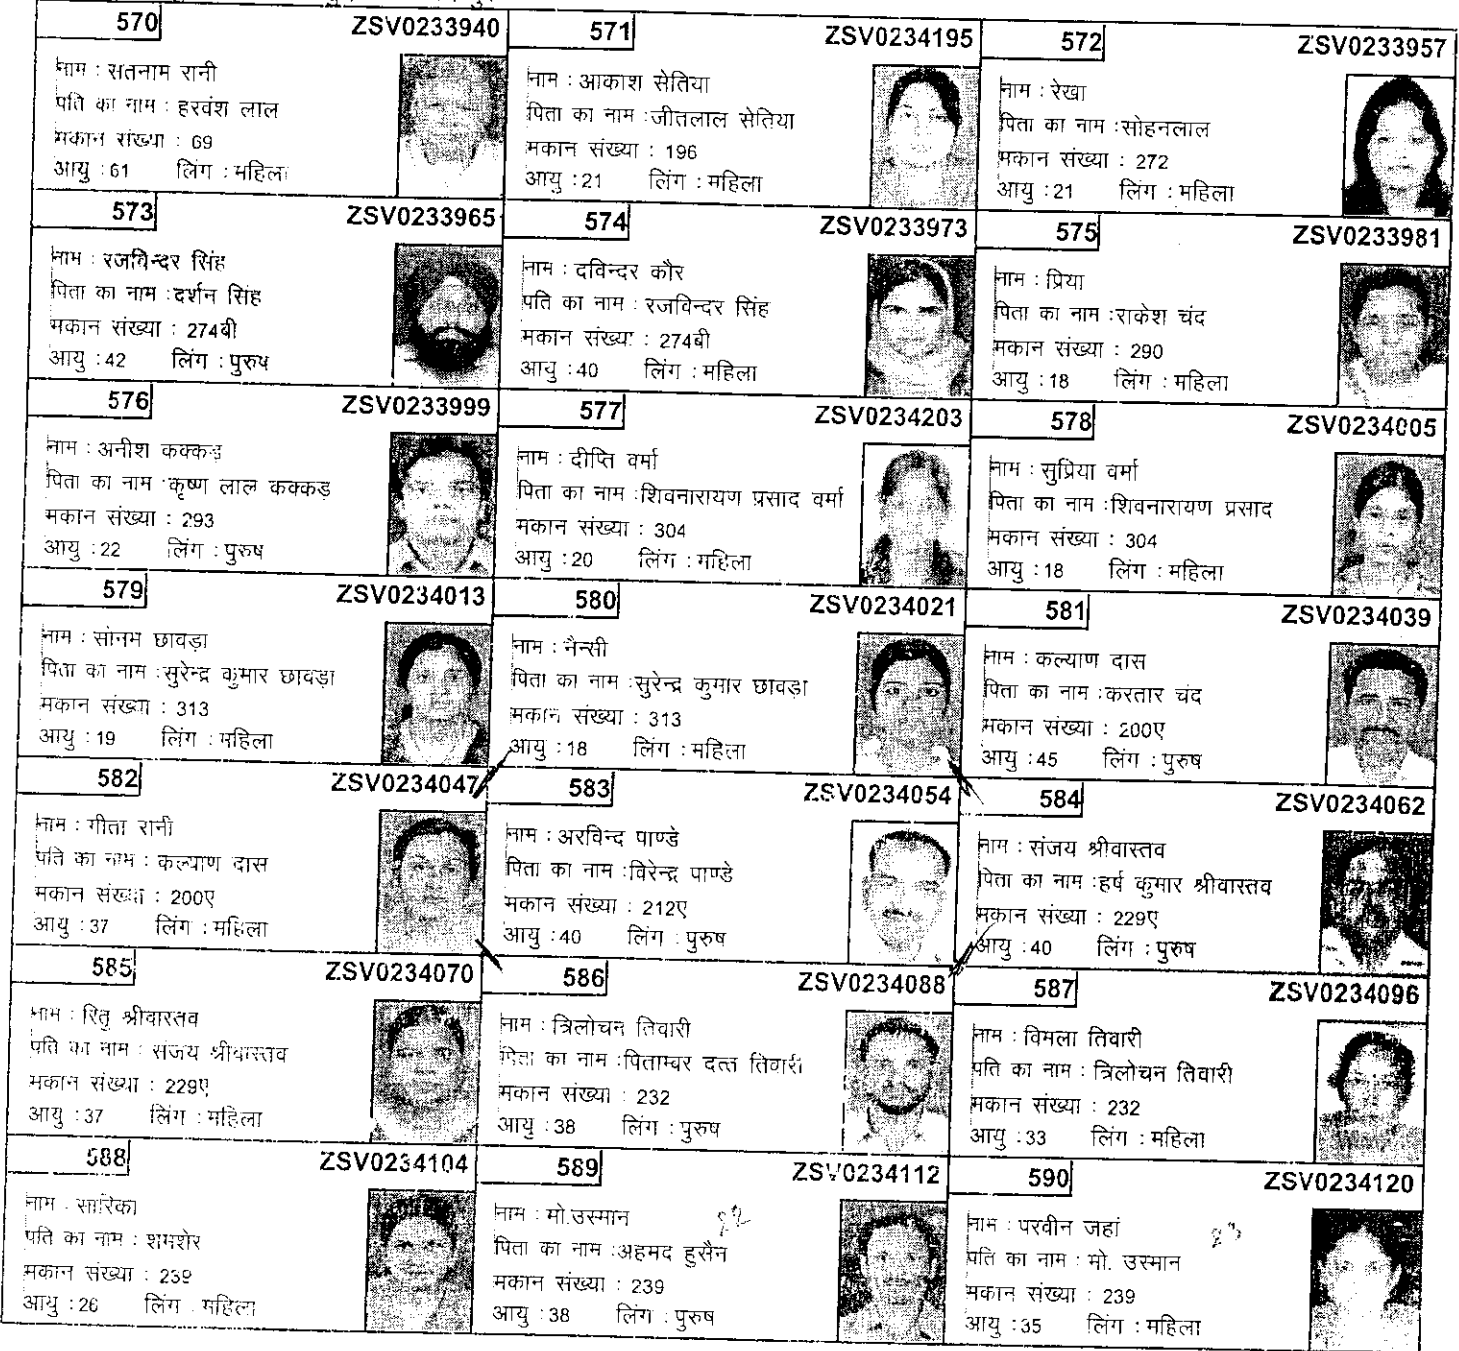 570 ZSV0233940
नाम : सतनाम रानी
पति का नाम : हरवंश लाल
मकान संख्या : 69
आयु :61 लिंग : महिला
571 ZSV0234195
नाम : आकाश सेतिया
पिता का नाम :जीतलाल सेतिया
मकान संख्या : 196
आयु :21 लिंग : महिला
572 ZSV0233957
नाम : रेखा
पिता का नाम :सोहनलाल
मकान संख्या : 272
आयु :21 लिंग : महिला
573 ZSV0233965
नाम : रजविन्दर सिंह
पिता का नाम :दर्शन सिंह
मकान संख्या : 274बी
आयु :42 लिंग : पुरुष
574 ZSV0233973
नाम : दविन्दर कौर
पति का नाम : रजविन्दर सिंह
मकान संख्या : 274बी
आयु :40 लिंग : महिला
575 ZSV0233981
नाम : प्रिया
पिता का नाम :राकेश चंद
मकान संख्या : 290
आयु :18 लिंग : महिला
576 ZSV0233999
नाम : अनीश कक्कड़
पिता का नाम :कृष्ण लाल कक्कड़
मकान संख्या : 293
आयु :22 लिंग : पुरुष
577 ZSV0234203
नाम : दीप्ति वर्मा
पिता का नाम :शिवनारायण प्रसाद वर्मा
मकान संख्या : 304
आयु :20 लिंग : महिला
578 ZSV0234005
नाम : सुप्रिया वर्मा
पिता का नाम :शिवनारायण प्रसाद
मकान संख्या : 304
आयु :18 लिंग : महिला
579 ZSV0234013
नाम : सोनम छावड़ा
पिता का नाम :सुरेन्द्र कुमार छावड़ा
मकान संख्या : 313
आयु :19 लिंग : महिला
580 ZSV0234021
नाम : नैन्सी
पिता का नाम :सुरेन्द्र कुमार छावड़ा
मकान संख्या : 313
आयु :18 लिंग : महिला
581 ZSV0234039
नाम : कल्याण दास
पिता का नाम :करतार चंद
मकान संख्या : 200ए
आयु :45 लिंग : पुरुष
582 ZSV0234047
नाम : गीता रानी
पति का नाम : कल्याण दास
मकान संख्या : 200ए
आयु :37 लिंग : महिला
583 ZSV0234054
नाम : अरविन्द पाण्डे
पिता का नाम :विरेन्द्र पाण्डे
मकान संख्या : 212ए
आयु :40 लिंग : पुरुष
584 ZSV0234062
नाम : संजय श्रीवास्तव
पिता का नाम :हर्ष कुमार श्रीवास्तव
मकान संख्या : 229ए
आयु :40 लिंग : पुरुष
585 ZSV0234070
नाम : रितु श्रीवास्तव
पति का नाम : संजय श्रीवास्तव
मकान संख्या : 229ए
आयु :37 लिंग : महिला
586 ZSV0234088
नाम : त्रिलोचन तिवारी
पिता का नाम :पिताम्वर दत्त तिवारी
मकान संख्या : 232
आयु :38 लिंग : पुरुष
587 ZSV0234096
नाम : विमला तिवारी
पति का नाम : त्रिलोचन तिवारी
मकान संख्या : 232
आयु :33 लिंग : महिला
588 ZSV0234104
नाम : सारिका
पति का नाम : शमशेर
मकान संख्या : 239
आयु :26 लिंग : महिला
589 ZSV0234112
नाम : मो.उस्मान
पिता का नाम :अहमद हुसैन
मकान संख्या : 239
आयु :38 लिंग : पुरुष
590 ZSV0234120
नाम : परवीन जहां
पति का नाम : मो. उस्मान
मकान संख्या : 239
आयु :35 लिंग : महिला